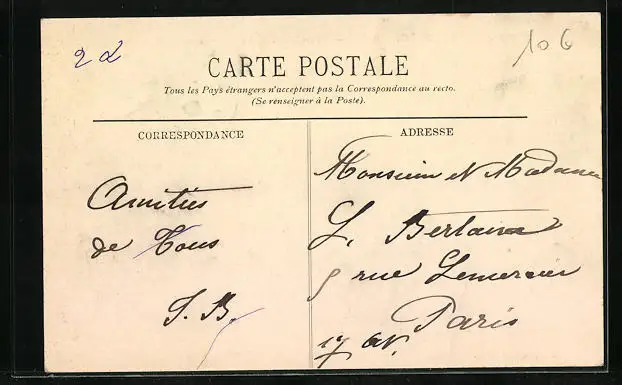 22
106
CARTE POSTALE
Tous les Pays étrangers n'acceptent pas la Correspondance au recto.
(Se renseigner à la Poste).
CORRESPONDANCE
Amitiés
de Tous
J. B.
ADRESSE
Monsieur et Madame
L.
rue Lemercier
Paris
17 Ar.